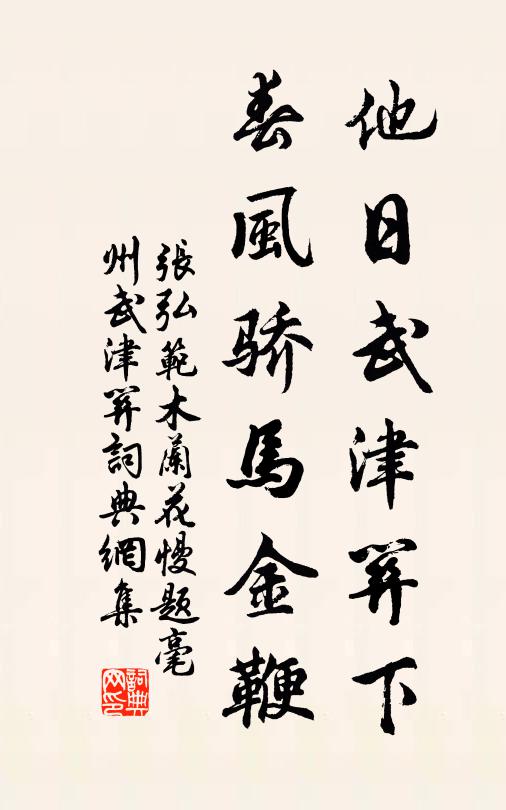 他日武津関下
春風骄馬金鞭
張弘範木蘭花慢题亳
州武津関詞典網集
詞典
网印